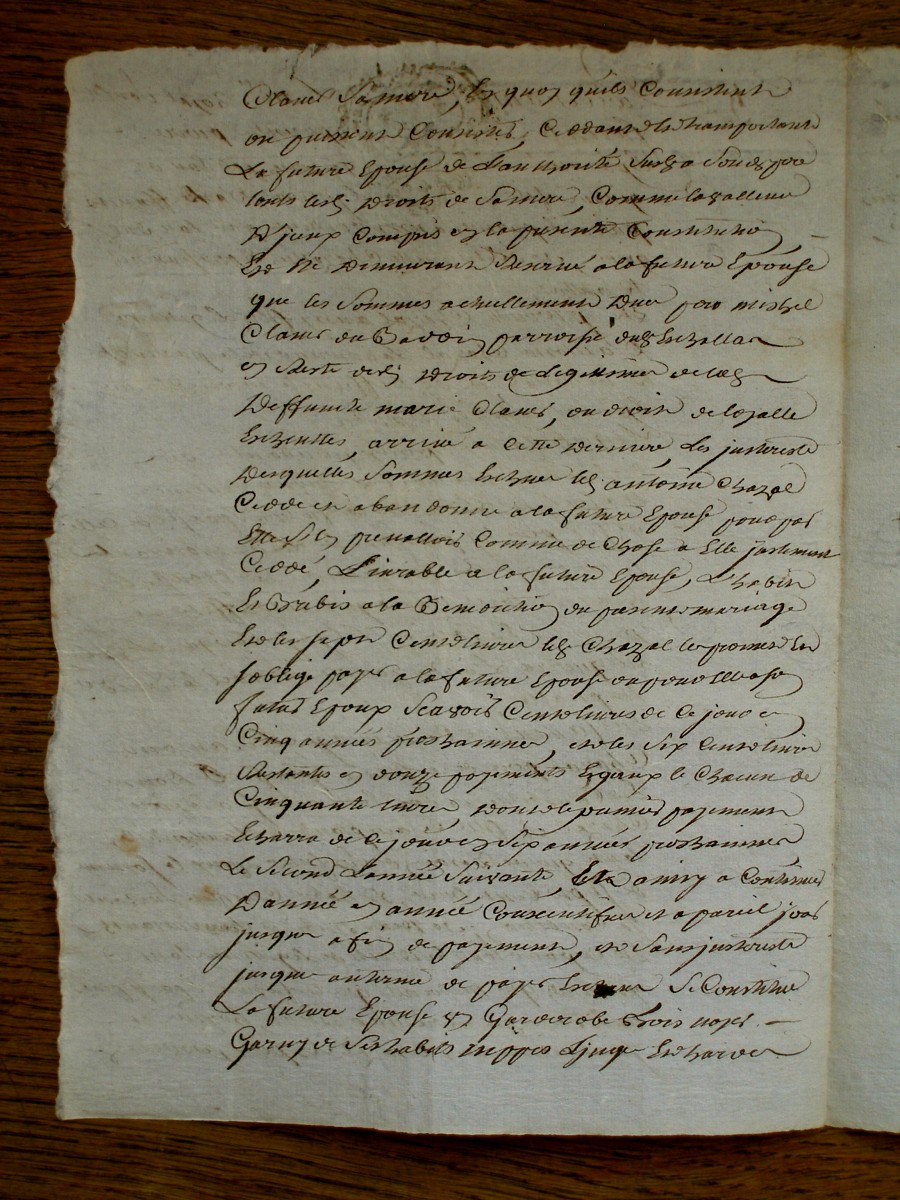 Clanet Sa mere, En quoy quils Consistent
ou puissent Consister, Ceddant Et transportant
La future Epouse de Lauthorité Susd a Sond pere
touts lesd Droits de Sa mere, Comme la valleur
D'jceux Compris en la presente Constitution
Et Ne Demeurant Reservé a la future Epouse
que les Sommes actuellement Dues par michel
Clanet du parroisse dud
en Reste desd Droits de Legitime de lad
Deffunte marie Clanet, ou droit de lad
Echeutte, arrivé a Cette Derniere, Les jnterets
Desquelles Sommes Echus led antoine Chazal
Cedde et abandonne a la future Epouse pour par
Elle S'en prevalloir Comme de Chose a Elle justement
Ceddé, Livrable a la future Epouse, L'habit
Et Brebis a la Benediction du present mariage
Et les sept Cents livres led Chazal les promet Et
s'oblige payer a la future Epouse ou pour Elle a son
futur Epoux Scavoir Cent livres de Ce jour en
Cinq années prochaines, et les Six Cents livres
Restantes en douze payements Egaux de Chacun de
Cinquante livres, Dont le premier payement
Echerra de Ce jour en Six années prochaines
Le Second L'année Suivante, Et ainsy a Continuer
D'année en année Consecutifves et a pareil jour
jusques a fin de payement, et Sans jnterets
jusques au terme de payer Echeus Se Constitue
La future Epouse en Garderobe bois noyer
Garny de Ses habits nippes Linge Et hardes